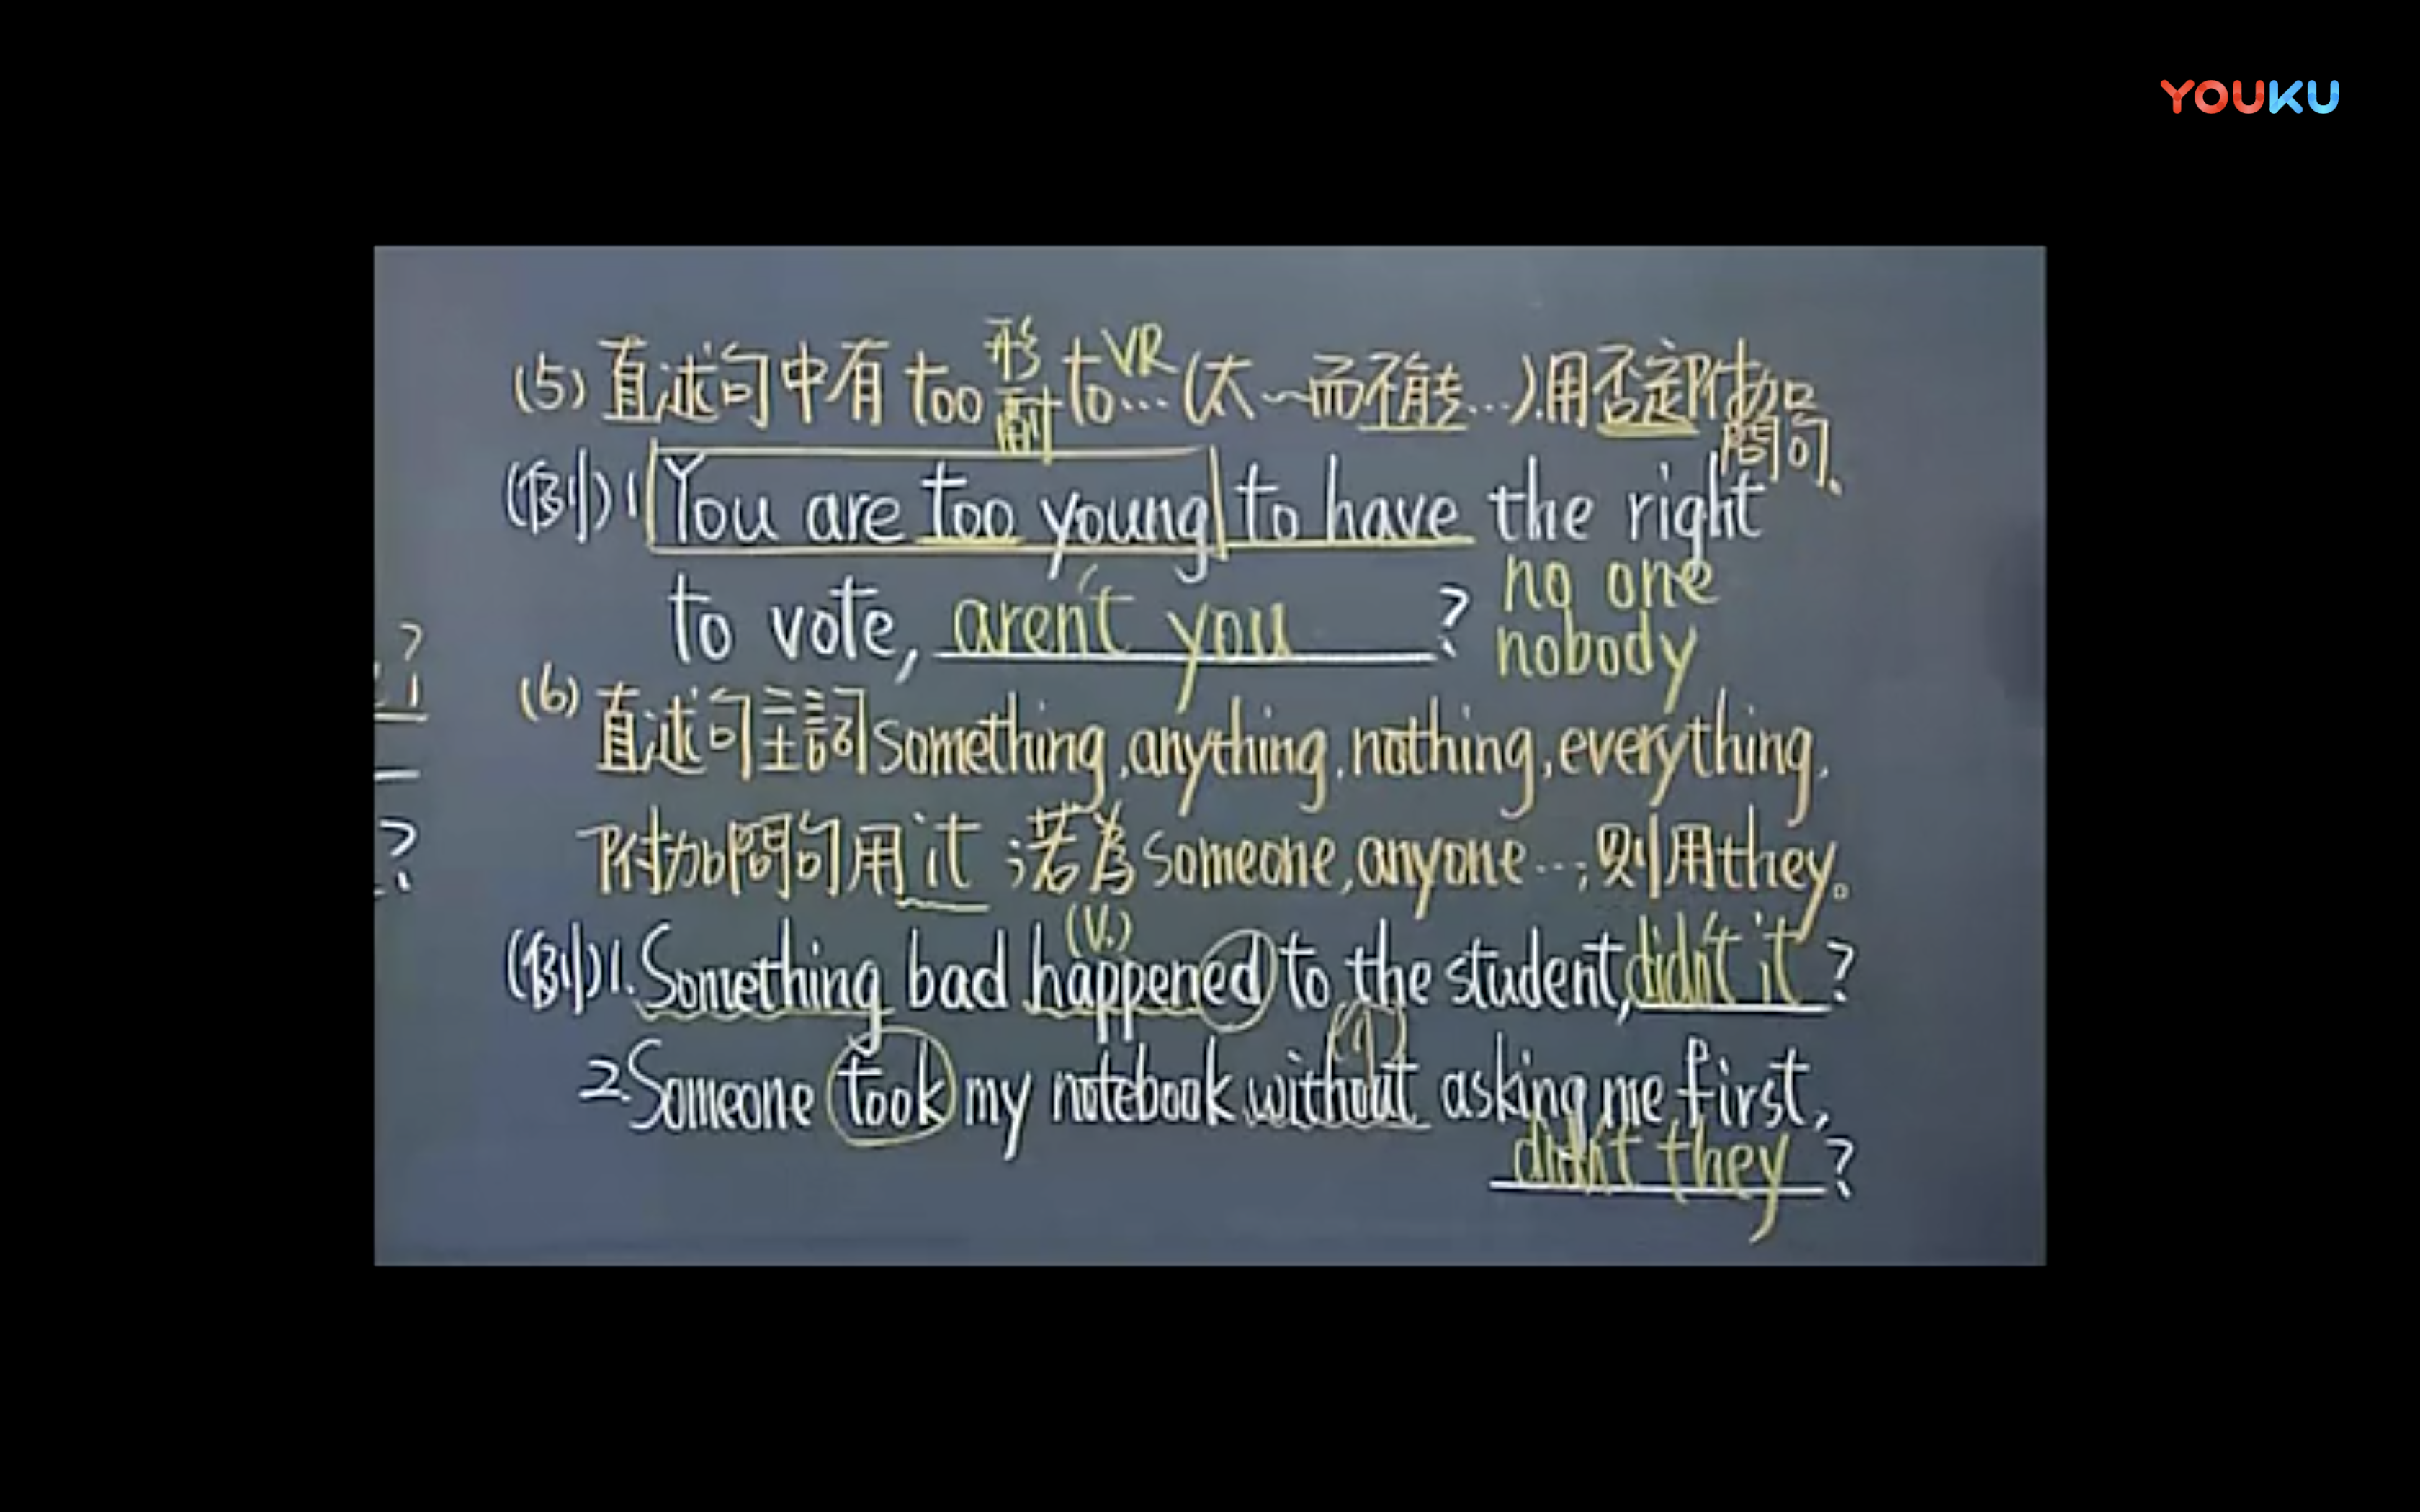 YOUKU
(5) 直述句中有 too 形 副 to VR… (太~而不能…).用否定附加問句.
(例)1 You are too young to have the right
to vote, aren't you ?
no one
nobody
(6) 直述句主詞something,anything,nothing,everything,
附加問句用it ;若為someone,anyone…;則用they。
(V.)
(例)1.Something bad happened to the student,didn't it ?
2.Someone took my notebook without asking me first,
didn't they ?
?
?